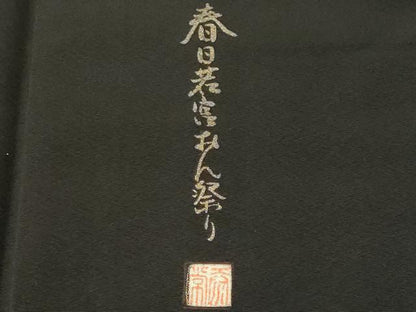 春日若宮おん祭り